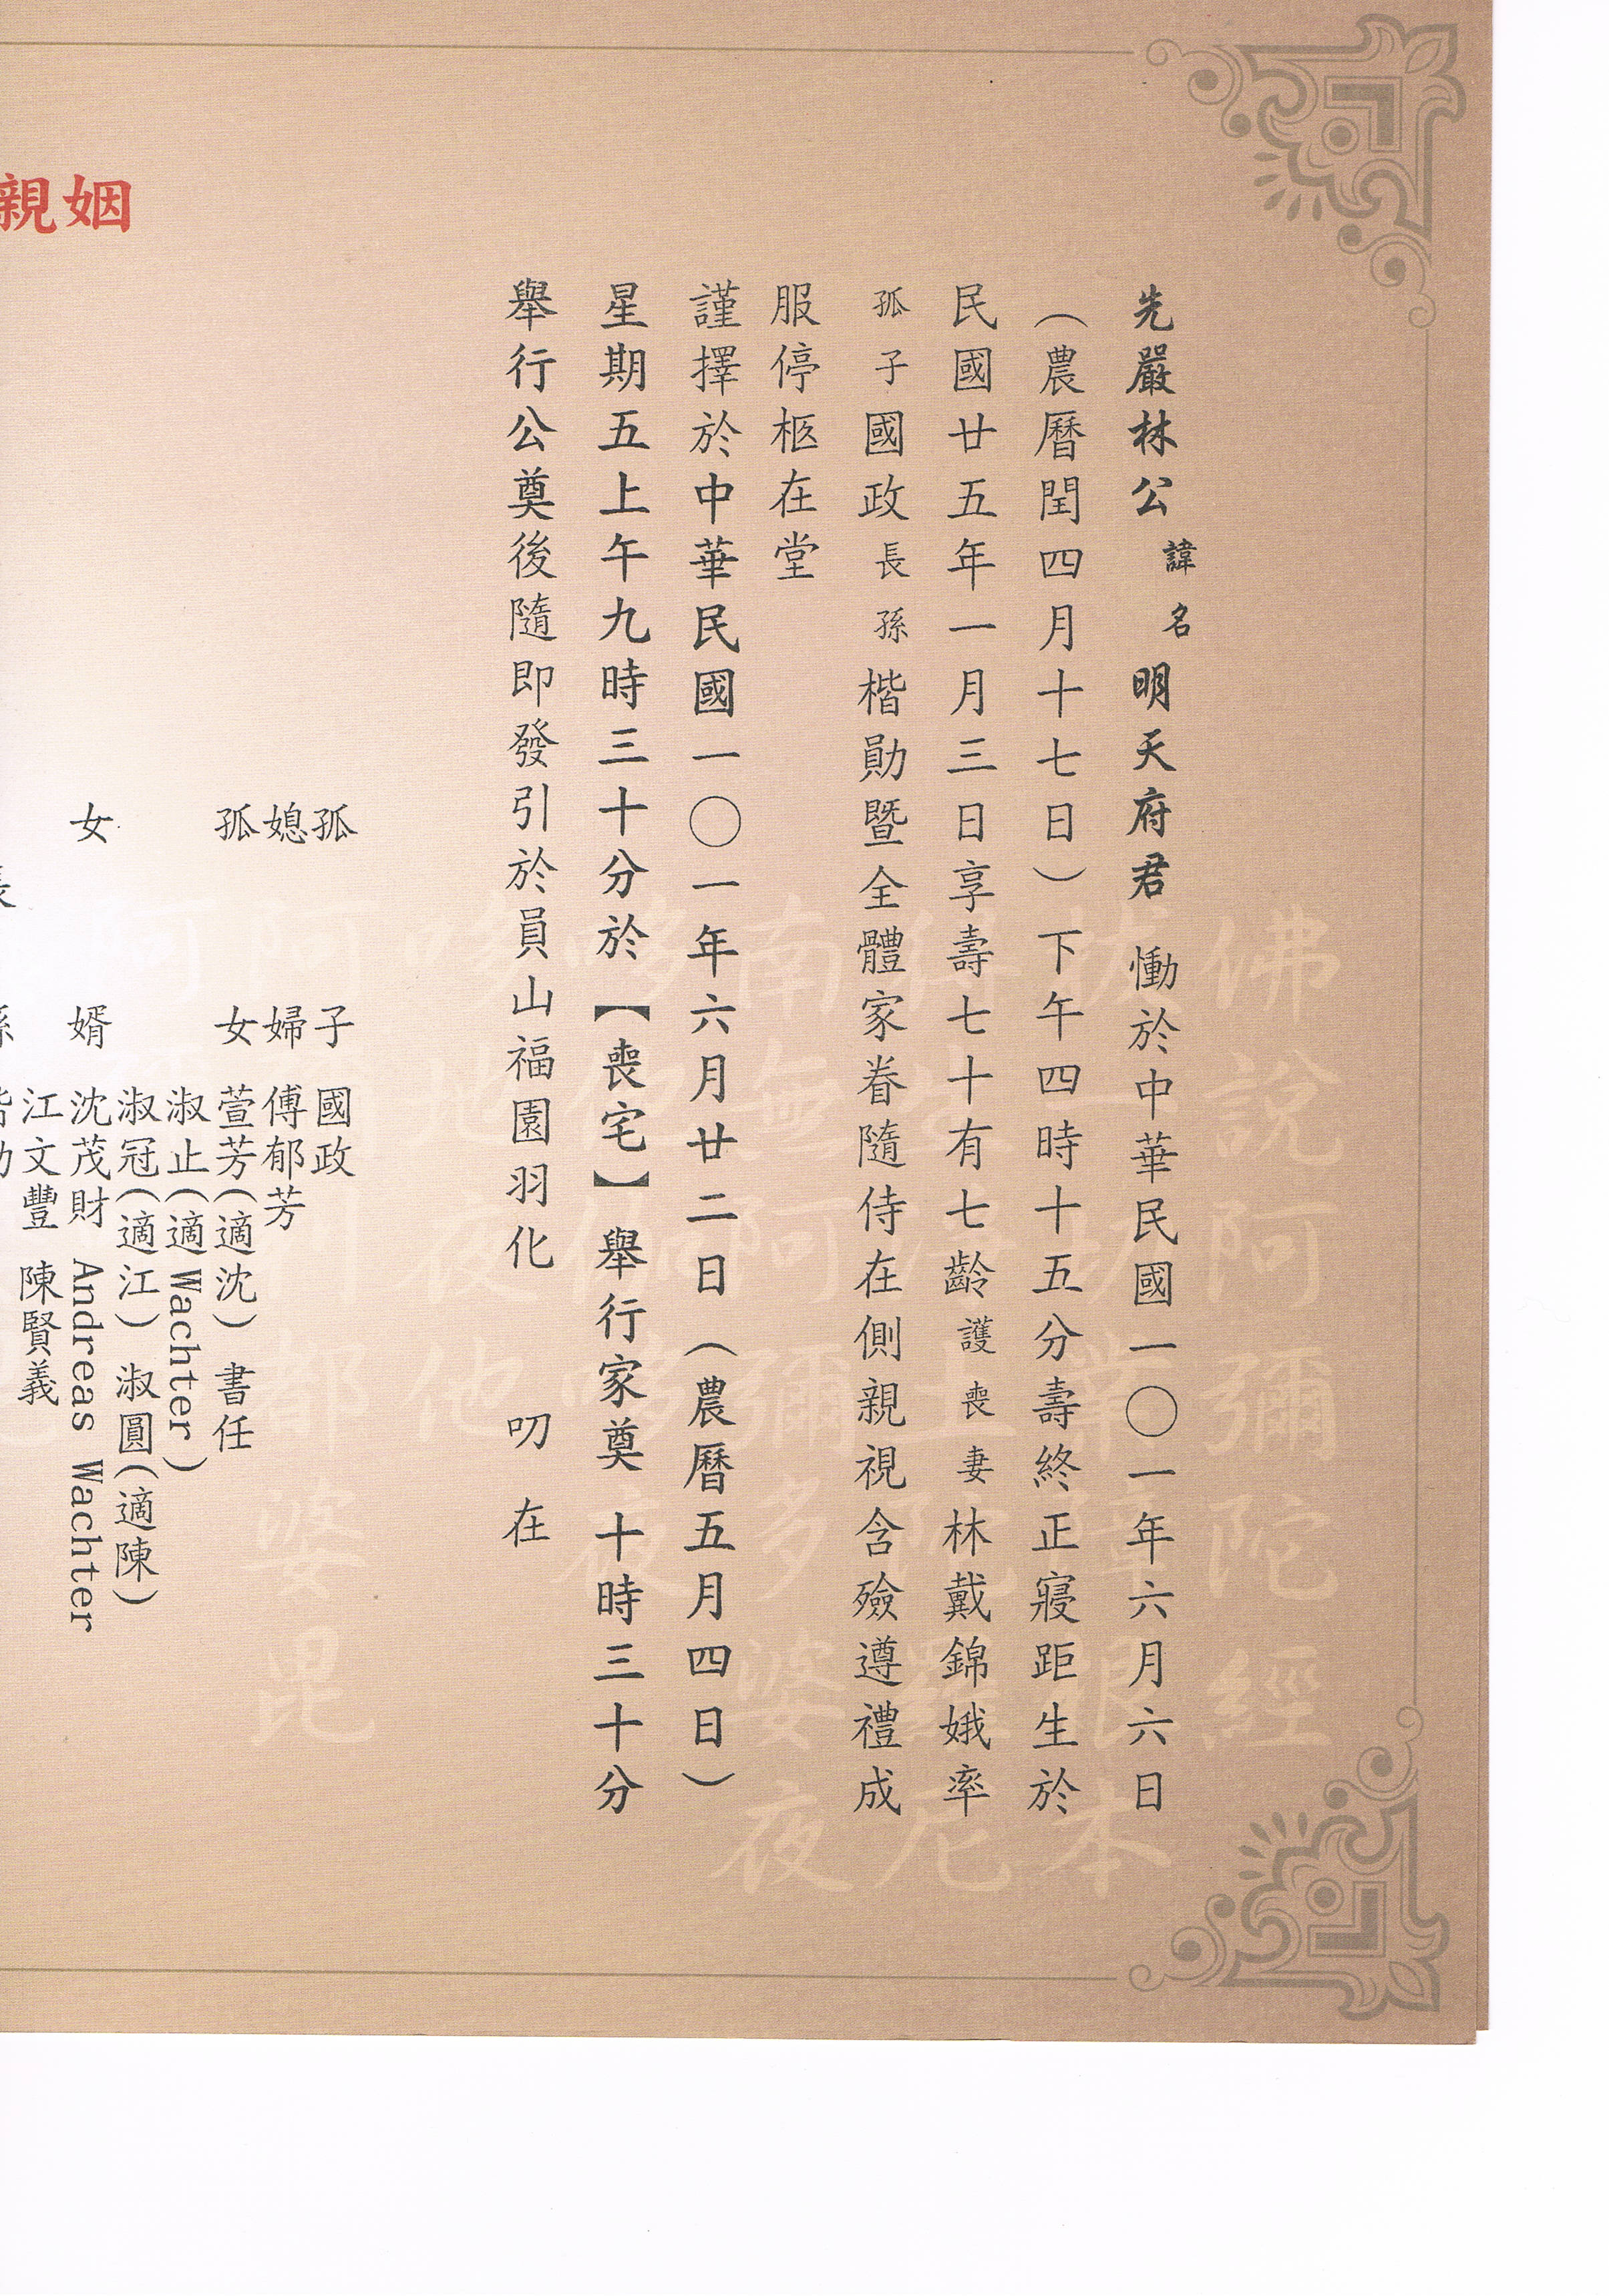 先嚴林公諱名明天府君 慟於中華民國一〇一年六月六日
（農曆閏四月十七日）下午四時十五分壽終正寢距生於
民國廿五年一月三日享壽七十有七齡護喪妻林戴錦娥率
孤子國政長孫楷勛暨全體家眷隨侍在側親視含殮遵禮成
服停柩在堂
謹擇於中華民國一〇一年六月廿二日（農曆五月四日）
星期五上午九時三十分於【喪宅】舉行家奠 十時三十分
舉行公奠後隨即發引於員山福園羽化 叨 在
孤 子 國政
媳 婦 傅郁芳
孤 女 萱芳（適沈） 書任
淑止（適Wachter）
淑冠（適江） 淑圓（適陳）
女 婿 沈茂財 Andreas Wachter
江文豐 陳賢義
姻親
佛說阿彌陀經